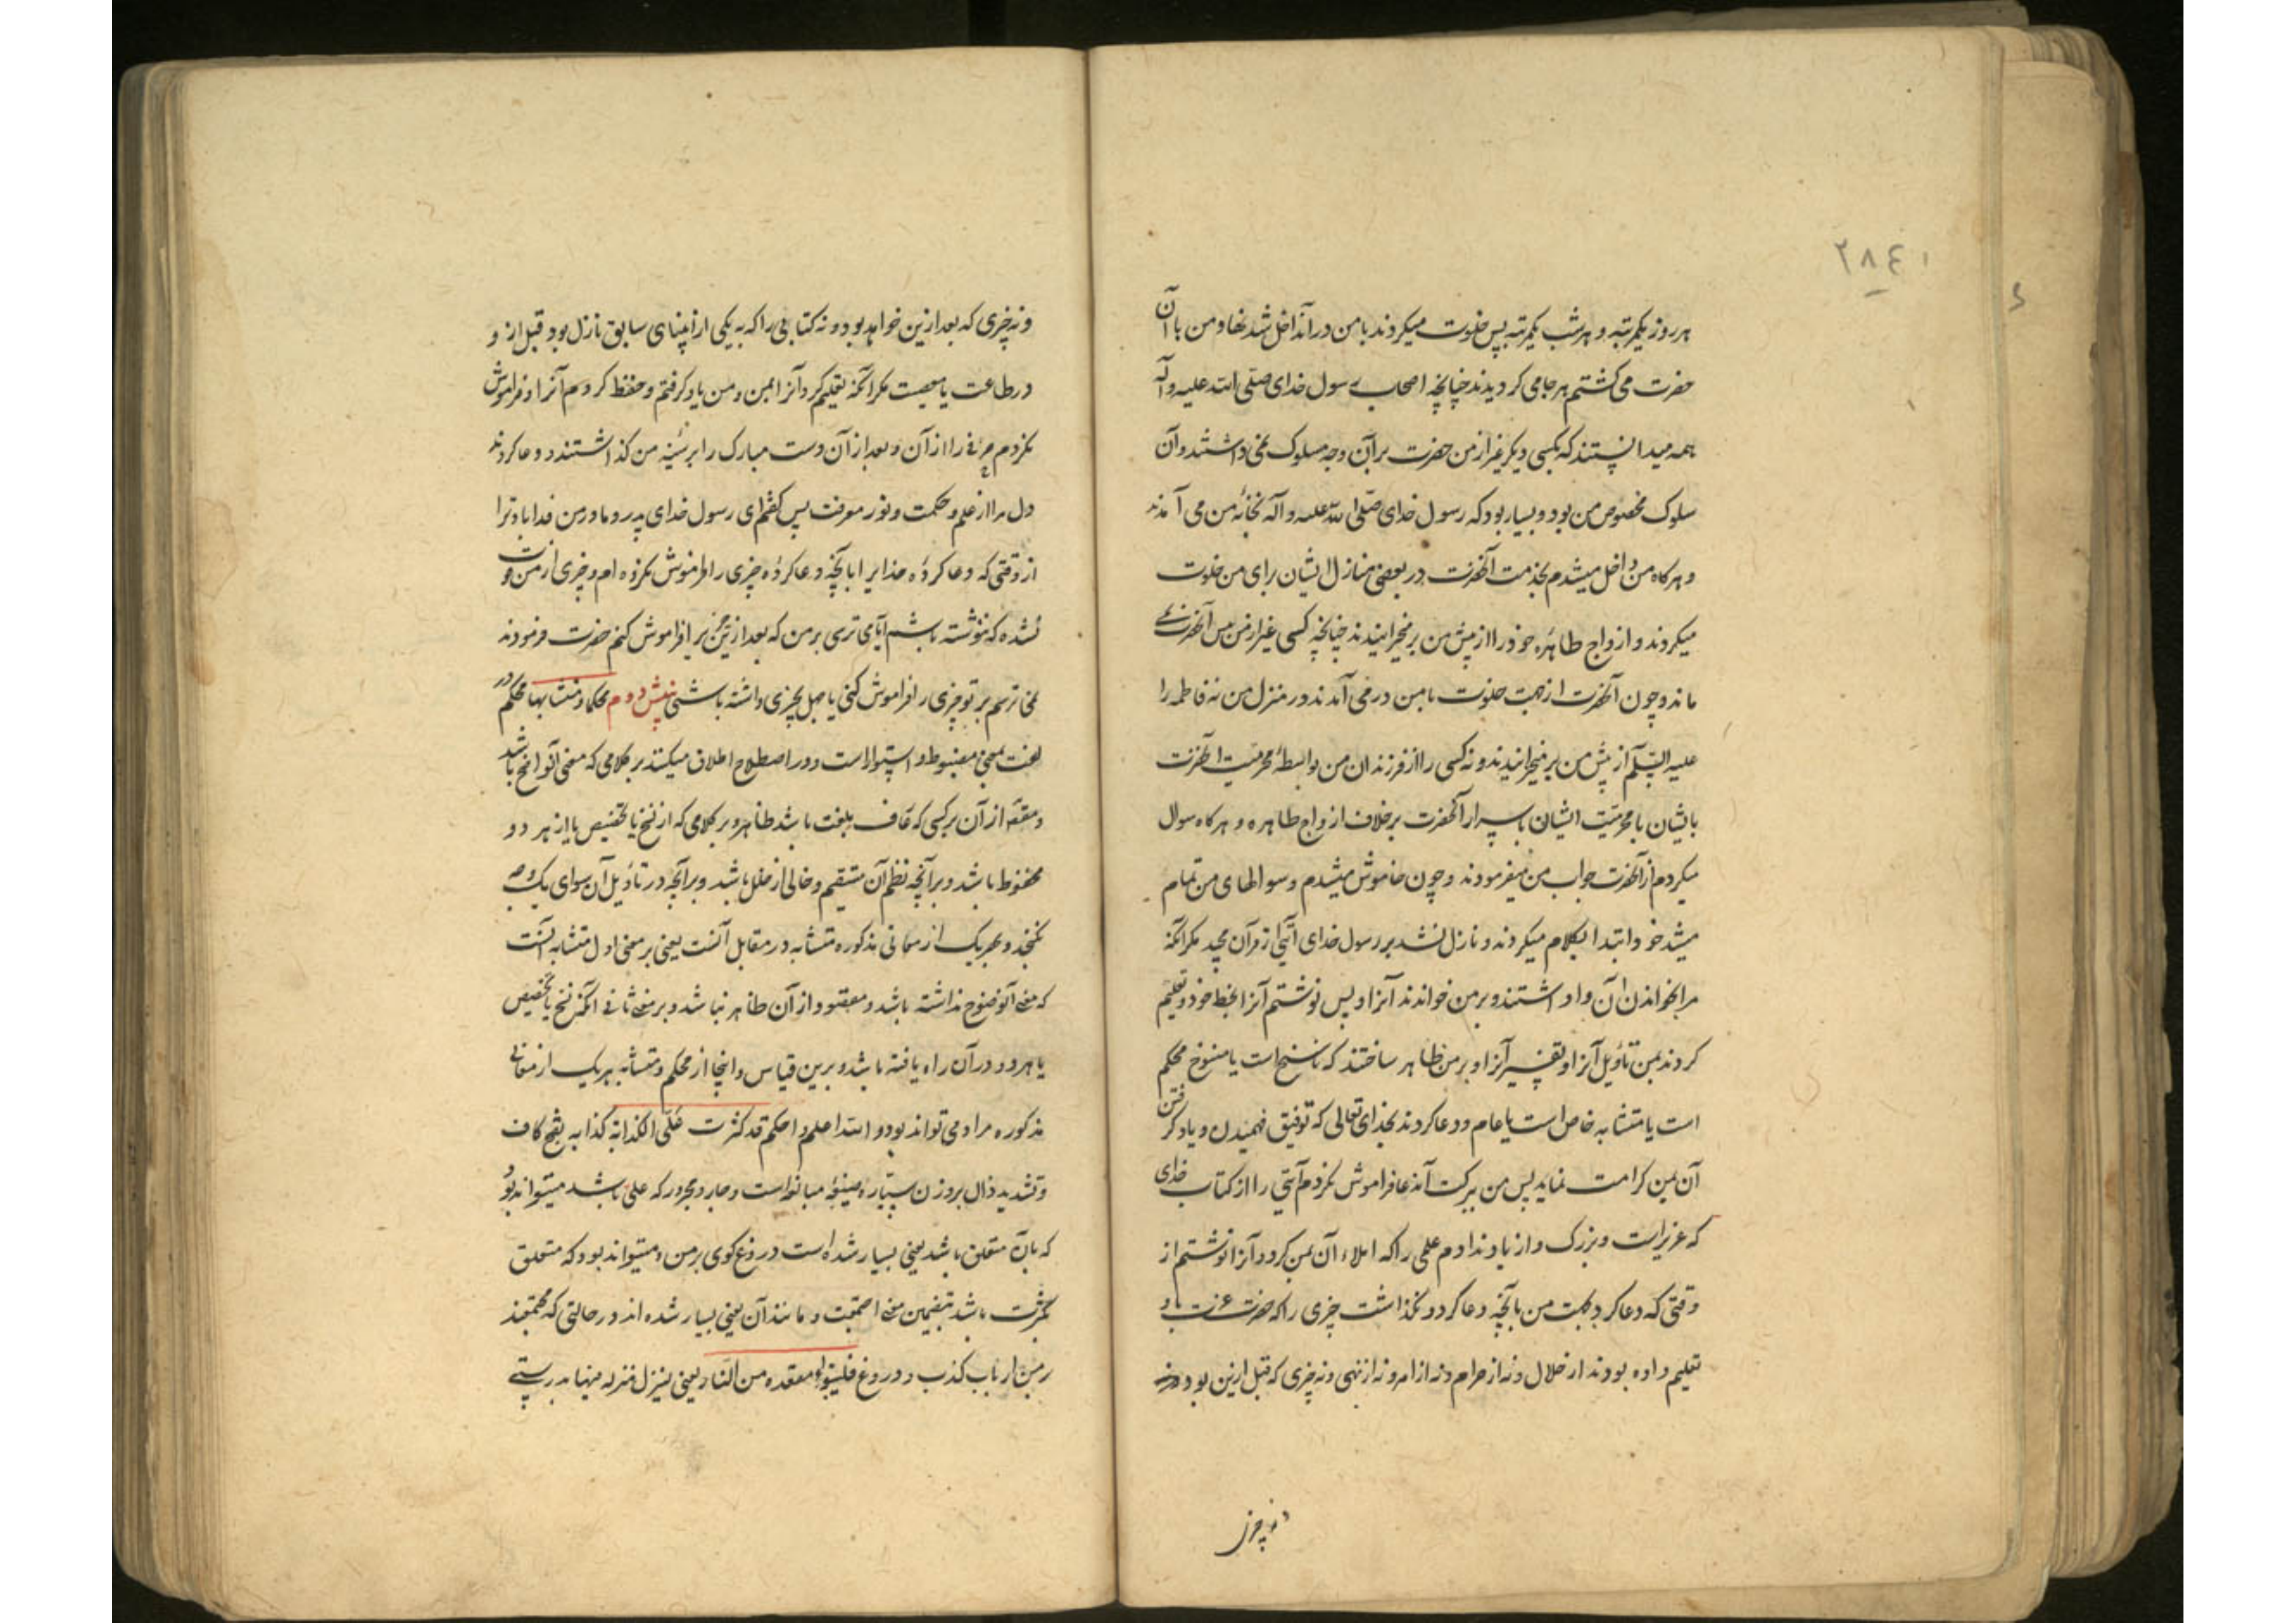 ۲۸٤۱
هر روز یکمرتبه و هر شب یکمرتبه پس خلوت میکردند با من در آنداخل شدنها و من با آن
حضرت می کشتم هر جا می کردیدند چنانچه اصحاب رسول خدای صلی الله علیه و آله
همه میدانستند که بکسی دیکر غیر از من حضرت بر آن وجه مسلوک نمی داشتند و آن
سلوک مخصوص من بود و بسیار بود که رسول خدای صلی الله علیه و آله بخانهٔ من می آمدند
و هر کاه من داخل میشدم بخدمت آنحضرت در بعضی منازل ایشان برای من خلوت
میکردند و ازواج طاهره خود را از پیش من بر میخیزانیدند چنانچه کسی غیر از من پس آنحضرت نمی
ماند و چون آنحضرت از جهت خلوت با من در می آمدند در منزل من نه فاطمه را
علیه السلام از پیش من بر میخیزانیدند و نه کسی را از فرزندان من بواسطهٔ محرمیت آنحضرت
بایشان یا محرمیت ایشان باسرار آنحضرت بر خلاف ازواج طاهره و هر کاه سوال
میکردم از آنحضرت جواب من میفرمودند و چون خاموش میشدم و سوالهای من تمام
میشد خود ابتدا بکلام میکردند و نازل نشد بر رسول خدای آیتی از قرآن مجید مکر آنکه
مرا بخواندن آن وا داشتند و بر من خواندند آنرا و پس نوشتم آنرا بخط خود و تعلیم
کردند بمن تأویل آنرا و تفسیر آنرا و بر من ظاهر ساختند که ناسخ است یا منسوخ محکم
است یا متشابه خاص است یا عام و دعا کردند بخدای تعالی که توفیق فهمیدن و یاد کرفتن
آن بمن کرامت نماید پس من ببرکت آندعا فراموش نکردم آیتی را از کتاب خدای
که عزیز است و بزرک و از یاد ندادم علمی را که املاء آن بمن کرد و آنرا نوشتم از
وقتی که دعا کرد بجهت من بآنچه دعا کرد و نکذاشت چیزی را که حضرت عزت باو
تعلیم داده بودند از حلال و نه از حرام و نه از امر و نه از نهی و نه چیزی که قبل ازین بود
و نه چیزی
و نه چیزی که بعد ازین خواهد بود و نه کتابی را که به یکی از انبیای سابق نازل بود قبل از و
در طاعت یا معصیت مکر آنکه تعلیم کرد آنرا بمن و من یاد کرفتم و حفظ کردم آنرا و فراموش
نکردم حرفی را از آن و بعد از آن دست مبارک را بر سینهٔ من کذاشتند و دعا کردند
دل مرا از علم و حکمت و نور معرفت پس کفتم ای رسول خدای پدر و مادر من فدا باد ترا
از وقتی که دعا کرده خدایرا بآنچه دعا کرده چیزی را فراموش نکرده ام و چیزی از من فوت
نشده که ننوشته باشم آیا می ترسی بر من که بعد ازین چیزی را فراموش کنم حضرت فرمودند
نمی ترسم بر تو چیزی را فراموش کنی یا جهل بچیزی داشته باشی نبش دوم محکما و متشابها محکم در
لغت بمعنی مضبوط و استوار است و در اصطلاح اطلاق میکنند بر کلامی که معنی آنواضح باشد
و مقصود از آن بر کسی که عارف بلغت باشد ظاهر و بر کلامی که از نسخ یا تخصیص یا از هر دو
محفوظ باشد و بر آنچه نظم آن مستقیم و خالی از خلل باشد و بر آنچه در تأویل آن سوای یک وجه
نکنجد و بهر یک از معانی مذکوره متشابه در مقابل آنست یعنی بر معنی اول متشابه آنست
که معنی آنوضوح نداشته باشد و مقصود از آن ظاهر نباشد و بر معنی ثانی آنکه نسخ یا تخصیص
یا هر دو در آن راه یافته باشد و برین قیاس و اینجا از محکم و متشابه هر یک از معانی
مذکوره مراد می تواند بود و الله اعلم و احکم قد کثرت علی الکذابة کذابه بفتح کاف
و تشدید ذال بر وزن سیّاره صیغهٔ مبالغه است و جار و مجرور که علی باشد میتواند بود
که بآن متعلق باشد یعنی بسیار شده است دروغ کوی بر من و میتواند بود که متعلق
بکثرت باشد بتضمین معنی اجتمعت و مانند آن یعنی بسیار شده اند در حالتی که مجتمعند
بر من ارباب کذب و دروغ فلیتبوأ مقعده من النار یعنی لینزل منزله منها بدرستی